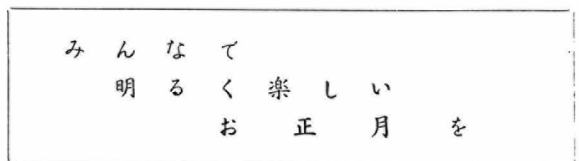 みんなで
明るく楽しい
お正月を